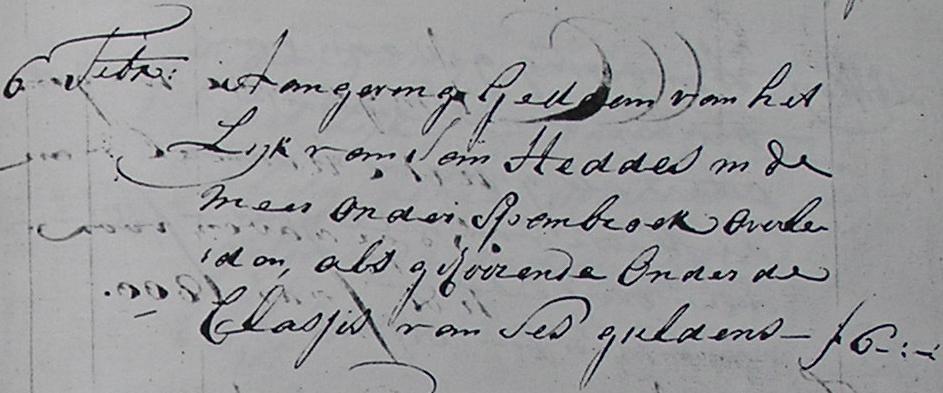 6 Febr: is Aangeving Gedaan van het
Lijk van Jan Heddes in de
meer onder Spanbroek overle
den, als gehoorende Onder de
Classis van Ses guldens — f 6-:-